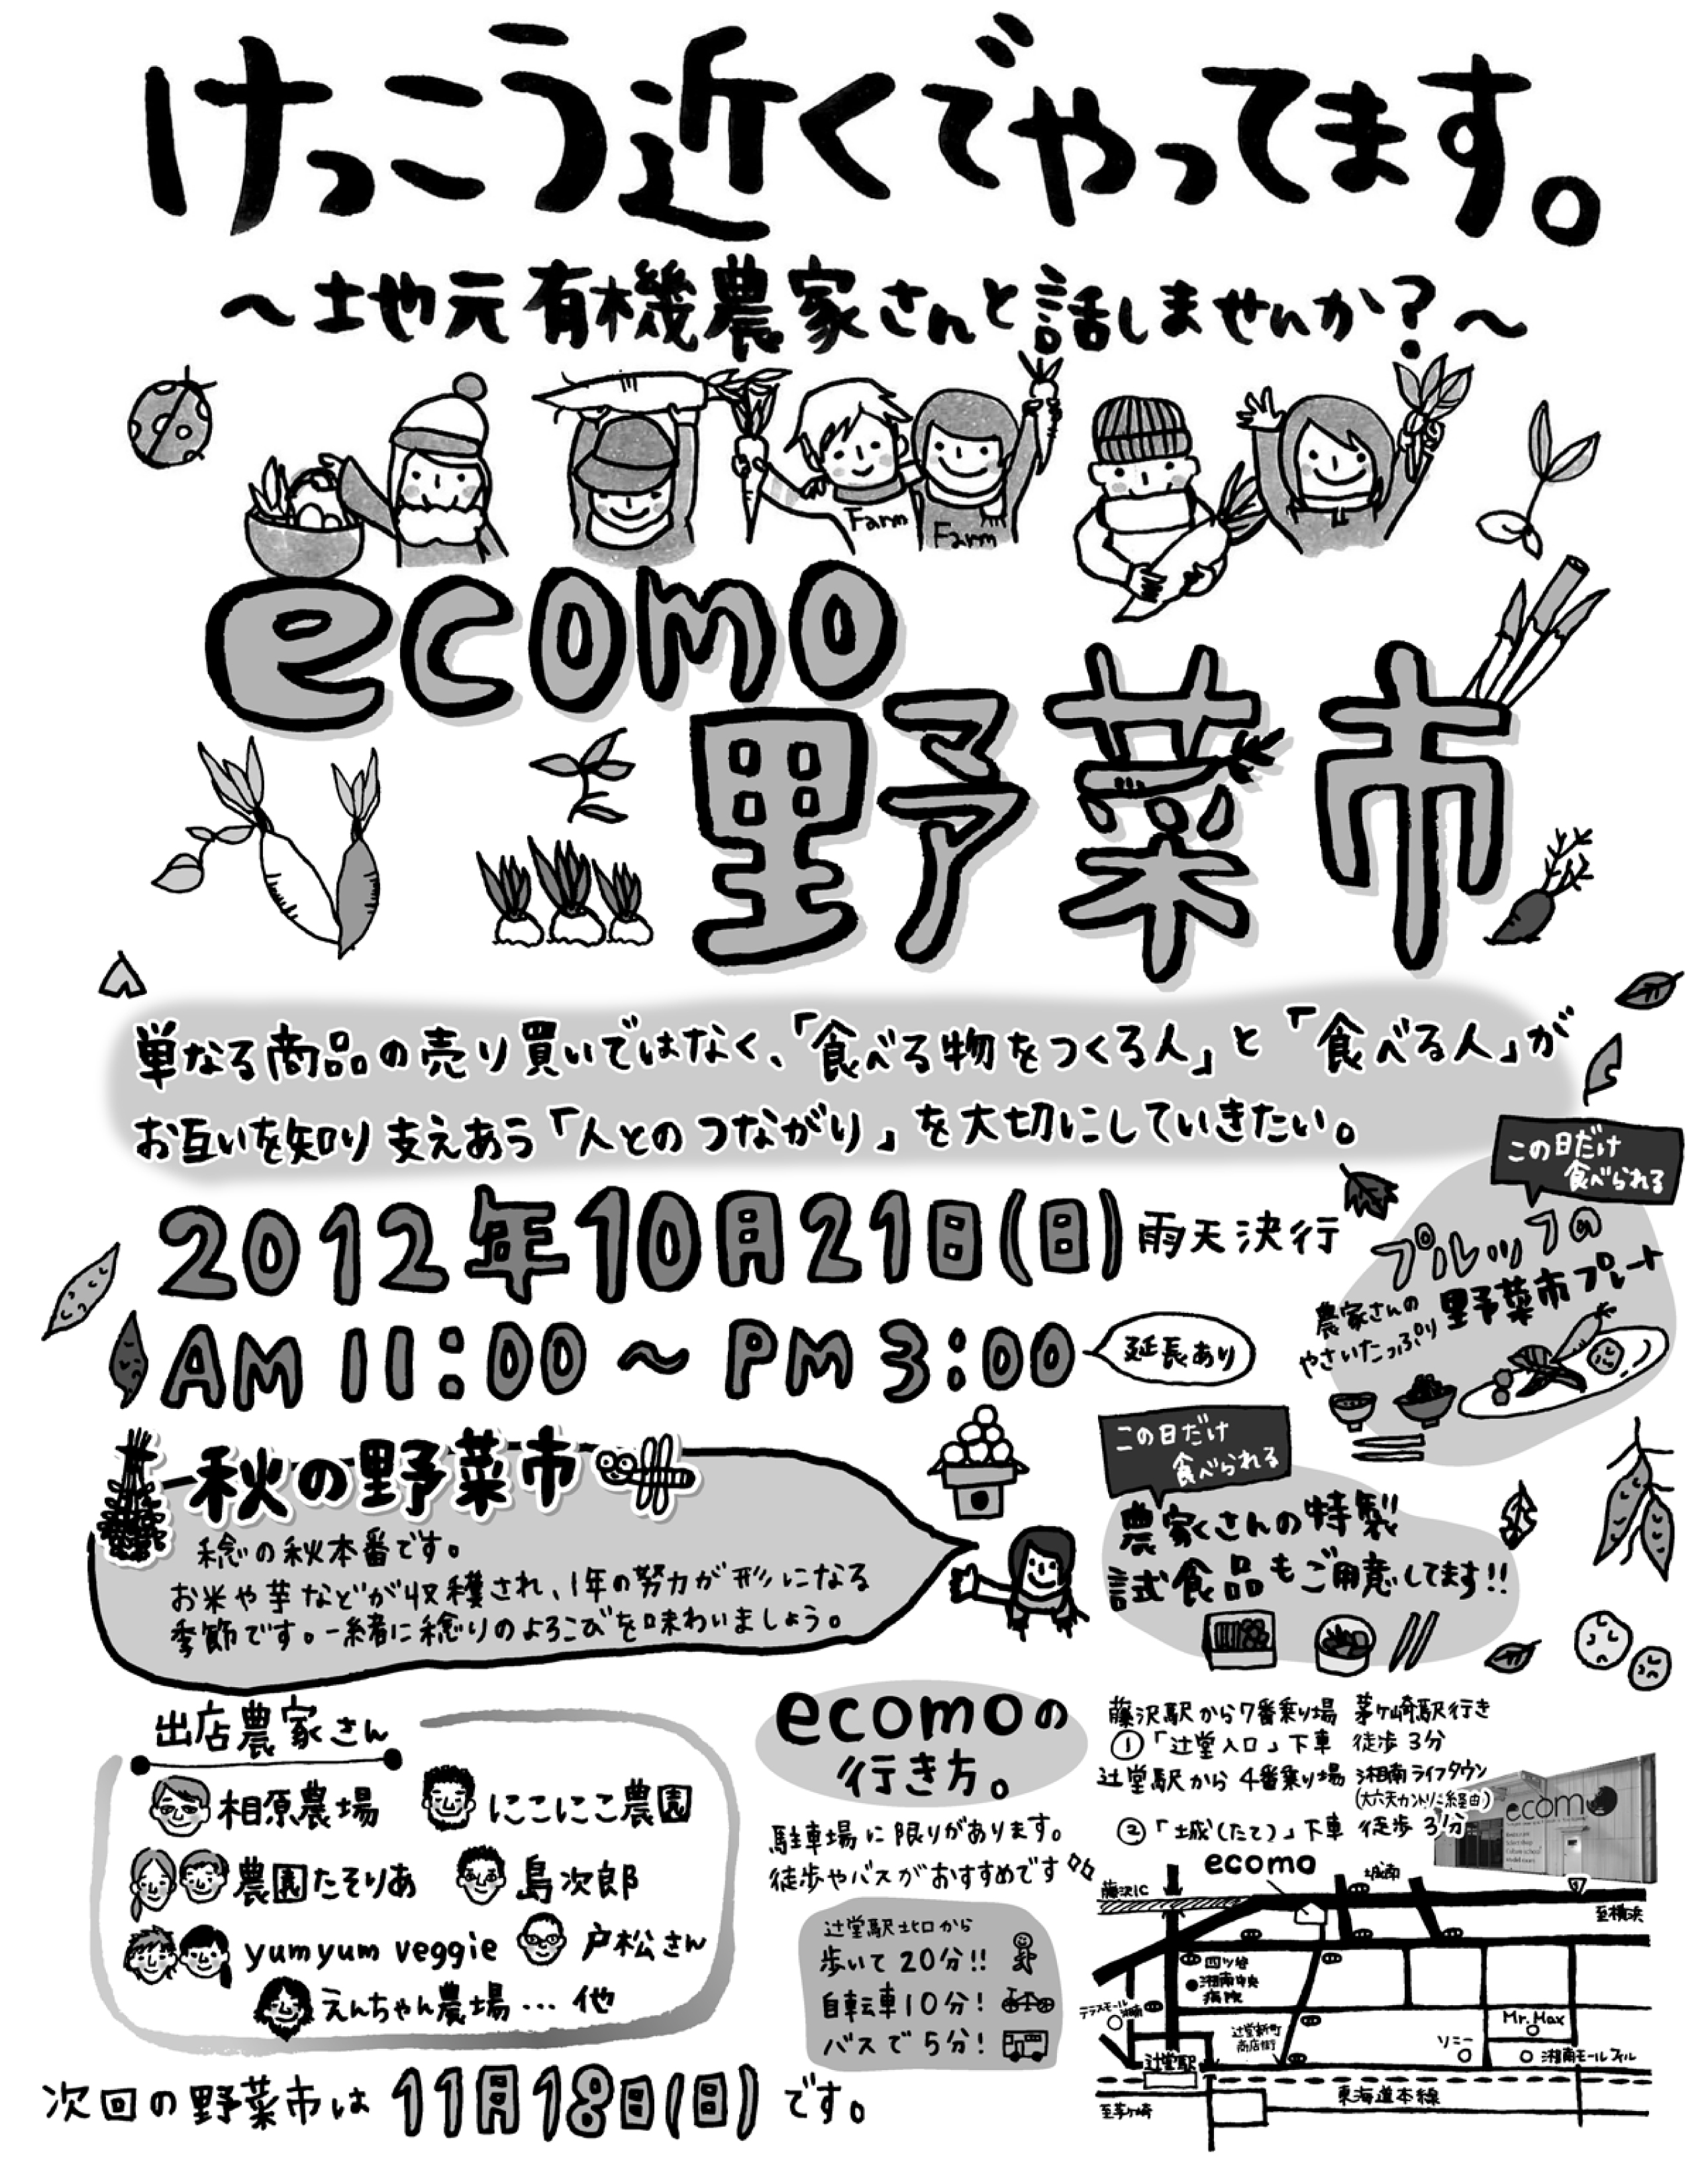 けっこう近くでやってます。
～地元有機農家さんと話しませんか？～
Farm
Farm
ecomo
野菜市
単なる商品の売り買いではなく、「食べる物をつくる人」と「食べる人」が
お互いを知り支えあう「人とのつながり」を大切にしていきたい。
2012年10月21日(日) 雨天決行
AM 11:00 ～ PM 3:00
延長あり
この日だけ
食べられる
プルップの
農家さんの
やさいたっぷり
野菜市プレート
秋の野菜市
稔の秋本番です。
お米や芋などが収穫され、1年の努力が形になる
季節です。一緒に稔りのよろこびを味わいましょう。
この日だけ
食べられる
農家さんの特製
試食品もご用意してます!!
出店農家さん
相原農場
にこにこ農園
農園たそりあ
島次郎
yumyum veggie
戸松さん
えんちゃん農場… 他
次回の野菜市は 11月18日(日) です。
ecomoの
行き方。
駐車場に限りがあります。
徒歩やバスがおすすめです
辻堂駅北口から
歩いて20分!!
自転車10分!
バスで5分!
藤沢駅から7番乗り場 茅ケ崎駅行き
①「辻堂入口」下車 徒歩3分
辻堂駅から 4番乗り場 湘南ライフタウン
(大六天カントリー経由)
②「城(たて)」下車 徒歩3分
ecomo
ecomo
藤沢IC
城南
至横浜
四ツ谷
湘南中央
病院
テラスモール
湘南
辻堂新町
商店街
Mr.Max
ソニー
湘南モールフィル
辻堂駅
東海道本線
至茅ヶ崎